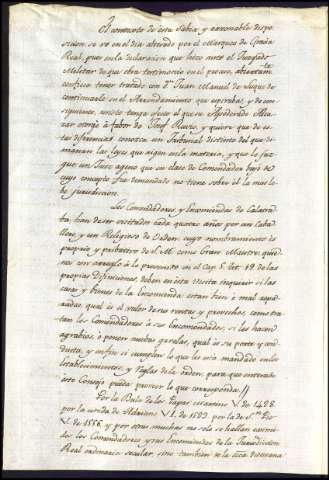 Al contexto de esta Sabia, y razonable dispo-
sicion se vé en el dia alterado por el Marques de Gracia
Real, pues en la declaracion que hizo ante el Juzgado
Militar de que obra testimonio en el proceso, abiertam.te
confiesa tener tratado con D.n Juan Manuel de
continuarle en el Arrendamiento que espiraba, y de con-
siguiente, no tiene efecto el que su Apoderado
otorgó á fabor de y quiere que de es-
tas diferencias conozca un Tribunal distinto del que de-
signan las leyes que rigen en la materia, y que le juz-
gue un Juez ageno que en clase de Comendador bajo de
cuyo concepto fue demandado no tiene sobre él la mas le-
be jurisdiccion.
Los Comendadores y Encomiendas de Calatra-
ba han de ser visitados cada quatro años por un Caba-
llero, y un Religioso de la Orden: cuyo nombramiento es
proprio y pribativo de S.M. como Gran Maestre, quie-
nes con arreglo á lo prevenido en el Cap. 5. tit. 12 de las
propias Difiniciones, deben en esta visita inquirir si las
casas y bienes de la Encomienda estan bien ó mal apa-
radas, qual es el valor de sus rentas y provechos, como tra-
tan los Comendadores á sus Encomendados, si les hacen
agrabios, ó ponen malas qual es su porte y con-
ducta, y enfin si cumplen lo que les está mandado en los
establecimientos, y reglas de la orden, para que enterado
este Consejo pueda proveer lo que corresponda.//
Por la Bula de los Papas Inocencio V. de 1486.
por la de Adriano VI. de 1523. por la de
V. de 1568. y por otras muchas no solo se hallan exemp-
tos los Comendadores y sus Encomiendas de la Jurisdiccion
Real ordinaria secular, sino tambien de la